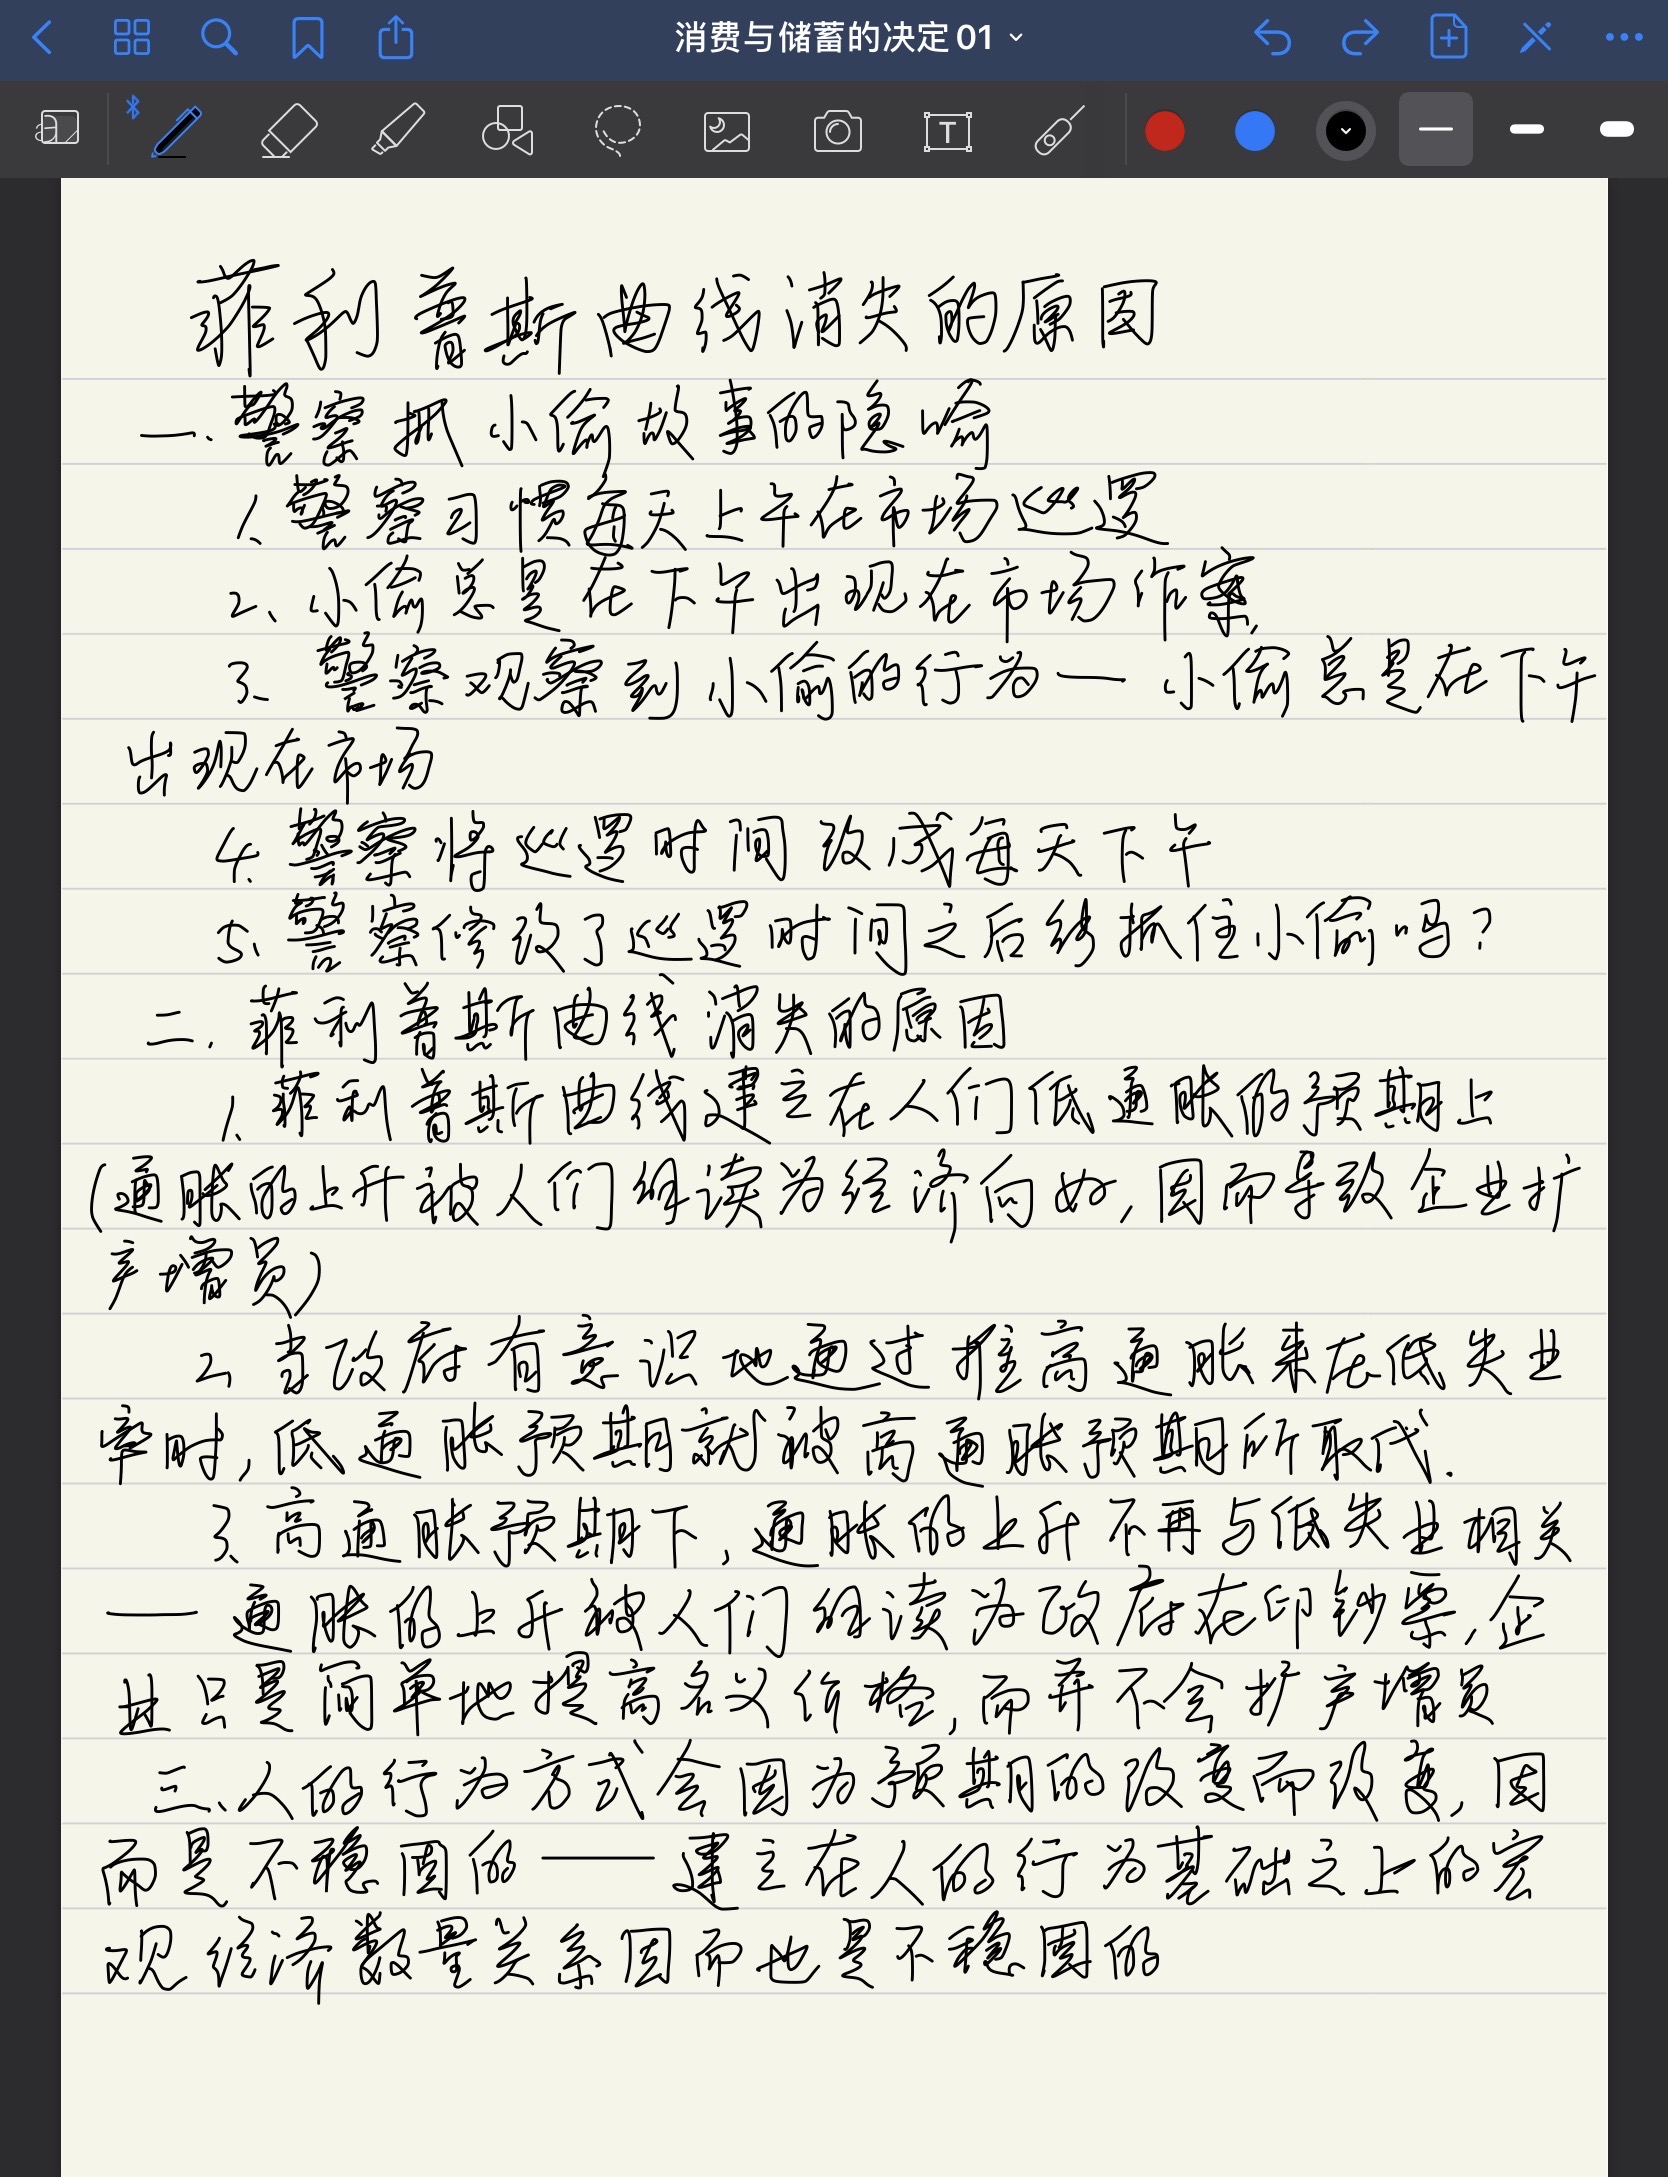 消费与储蓄的决定 01
T
菲利普斯曲线消失的原因
一.警察抓小偷故事的隐喻
1.警察习惯每天上午在市场巡逻
2、小偷总是在下午出现在市场作案.
3、警察观察到小偷的行为— 小偷总是在下午
出现在市场
4.警察将巡逻时间改成每天下午
5、警察修改了巡逻时间之后能抓住小偷吗?
二.菲利普斯曲线消失的原因
1.菲利普斯曲线建立在人们低通胀的预期上
(通胀的上升被人们解读为经济向好,因而导致企业扩
产增员)
2、当政府有意识地通过推高通胀来在低失业
率时,低通胀预期就被高通胀预期所取代.
3、高通胀预期下,通胀的上升不再与低失业相关
——通胀的上升被人们解读为政府在印钞票,企
业只是简单地提高名义价格,而并不会扩产增员
三、人的行为方式会因为预期的改变而改变,因
而是不稳固的——建立在人的行为基础之上的宏
观经济数量关系因而也是不稳固的